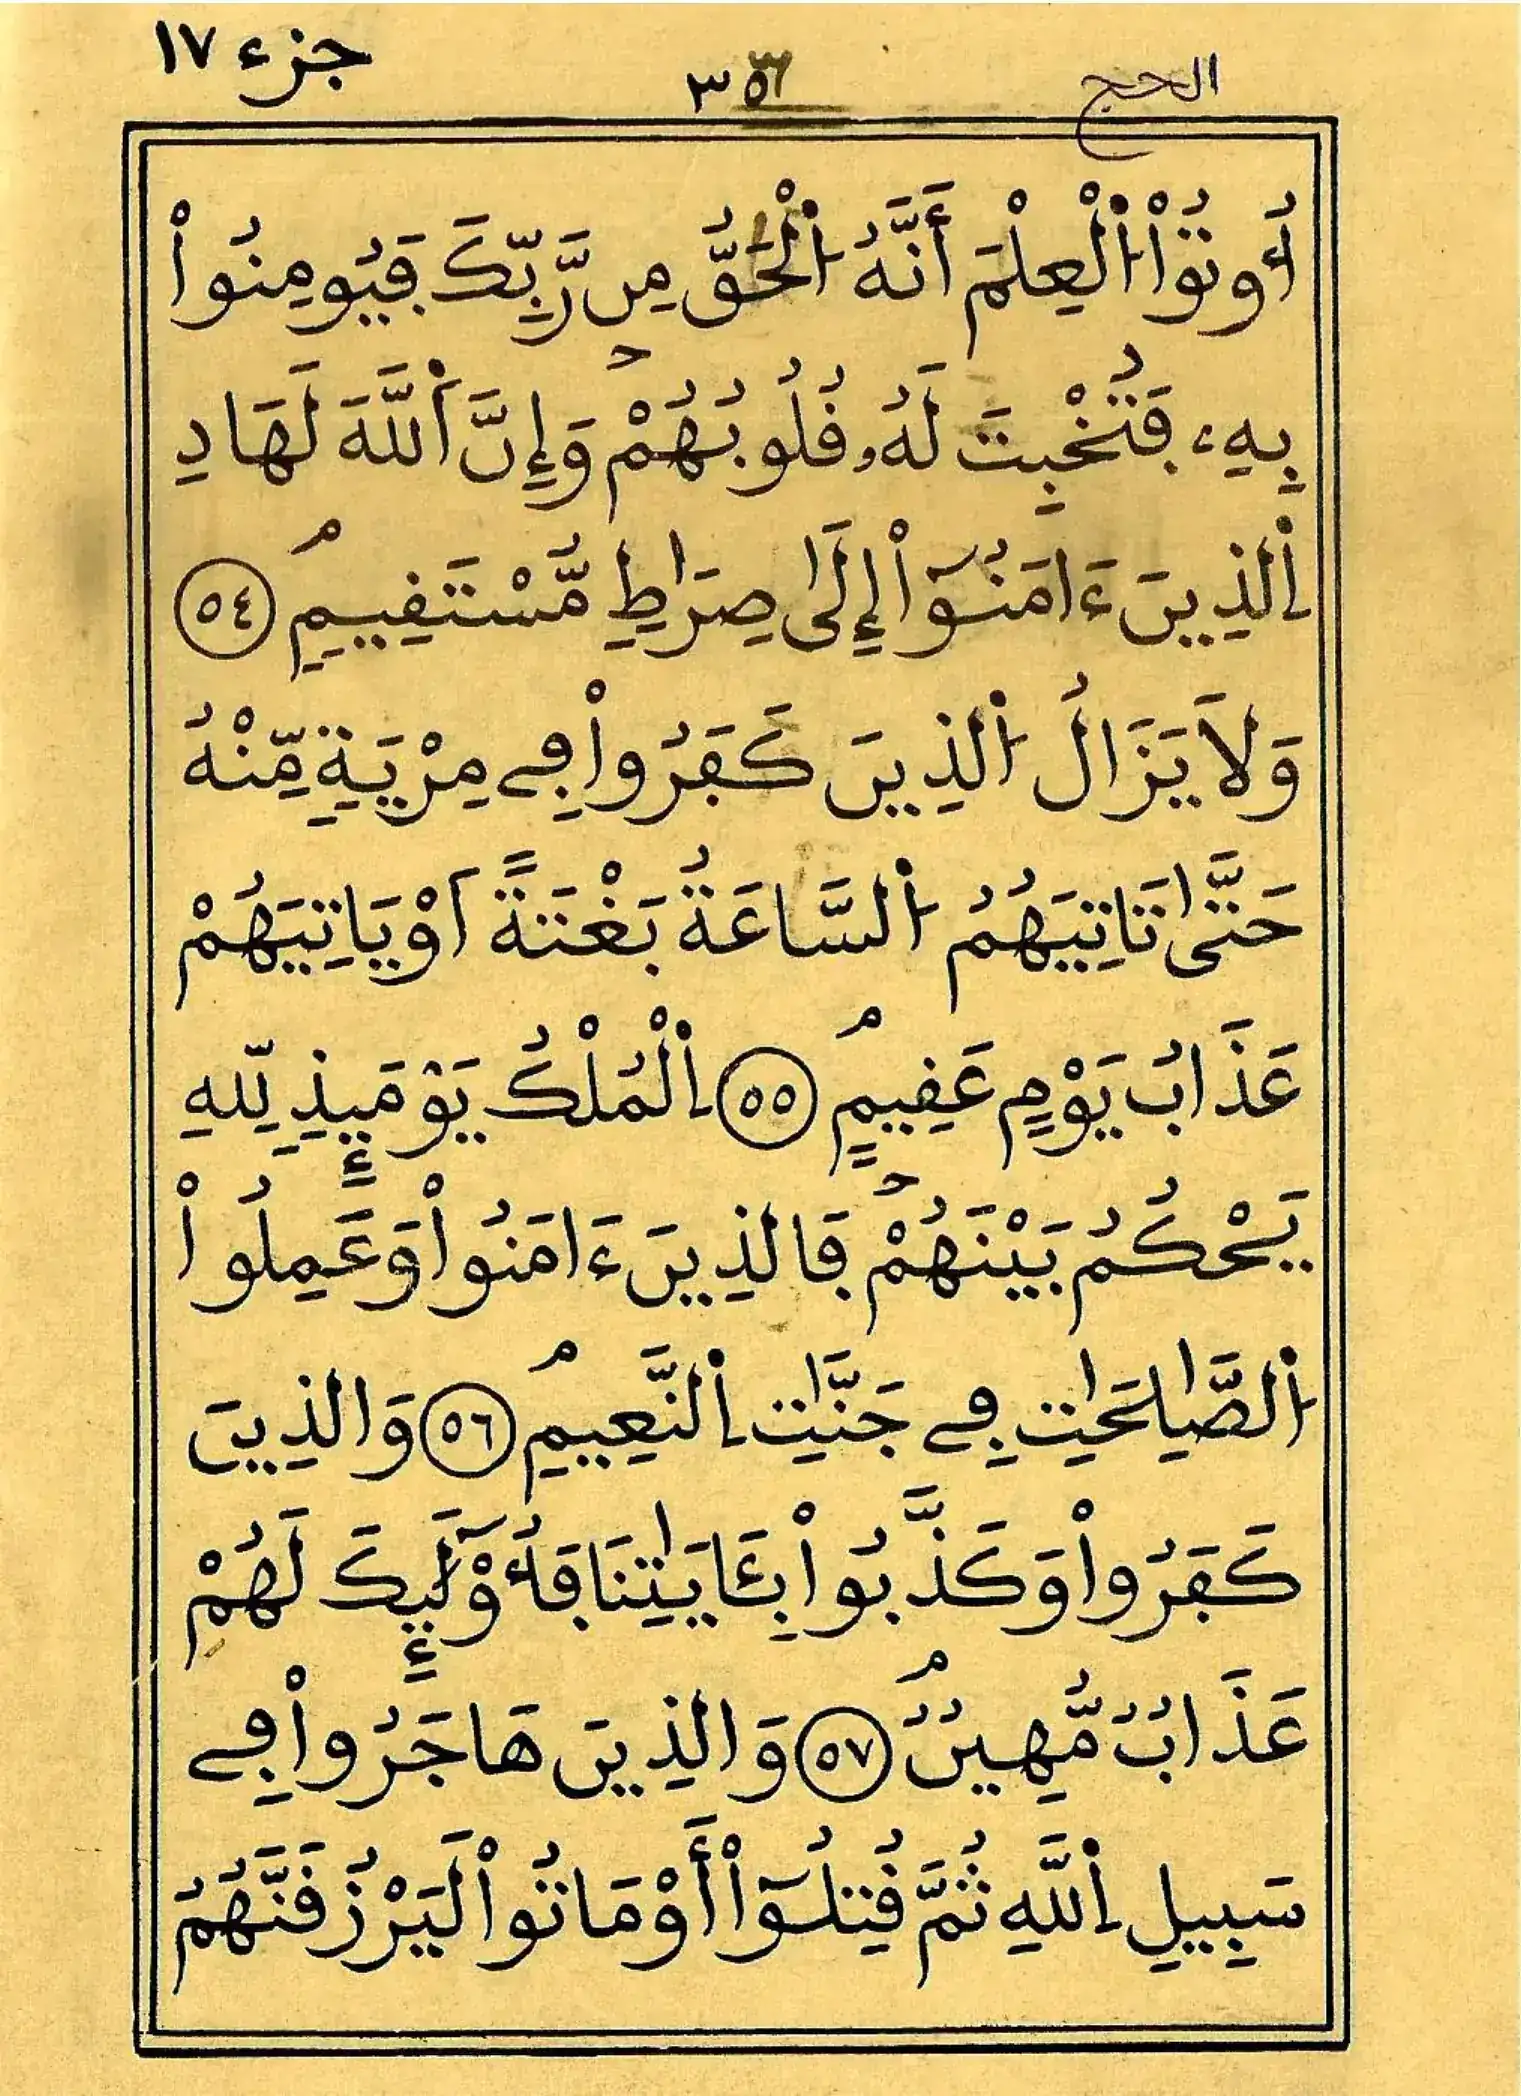 الحج
٣٥٣
جزء ١٧
أُوتُواْ اُلْعِلْمَ أَنَّهُ اُلْحَقُّ مِن رَّبِّكَ فَيُومِنُواْ
بِهِۦ فَتُخْبِتَ لَهُۥ قُلُوبُهُمْ وَإِنَّ اَللَّهَ لَهَادِ
اِلذِينَ ءَامَنُوٓاْ إِلَىٰ صِرَٰطٍ مُّسْتَقِيمٍ ٥٤
وَلَا يَزَالُ اُلذِينَ كَفَرُواْ فِے مِرْيَةٍ مِّنْهُ
حَتَّىٰ تَاتِيَهُمُ اُلسَّاعَةُ بَغْتَةً اَوْ يَاتِيَهُمْ
عَذَابُ يَوْمٍ عَقِيمٍ ٥٥ اِلْمُلْكُ يَوْمَئِذٍ لِّلهِ
يَحْكُمُ بَيْنَهُمْ فَالذِينَ ءَامَنُواْ وَعَمِلُواْ
اُلصَّٰلِحَٰتِ فِے جَنَّٰتِ اِلنَّعِيمِ ٥٦ وَالذِينَ
كَفَرُواْ وَكَذَّبُواْ بِـَٔايَٰتِنَا فَأُوْلَٰٓئِكَ لَهُمْ
عَذَابٌ مُّهِينٌ ٥٧ وَالذِينَ هَاجَرُواْ فِے
سَبِيلِ اِللَّهِ ثُمَّ قُتِلُوٓاْ أَوْ مَاتُواْ لَيَرْزُقَنَّهُمُ